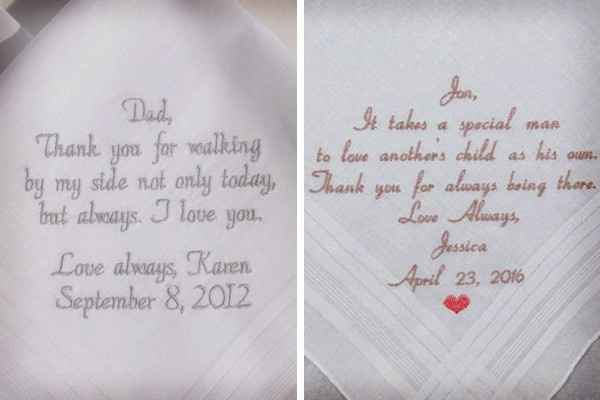 Dad,
Thank you for walking
by my side not only today,
but always. I love you.
Love always, Karen
September 8, 2012
Jon,
It takes a special man
to love another's child as his own.
Thank you for always being there.
Love Always,
Jessica
April 23, 2016